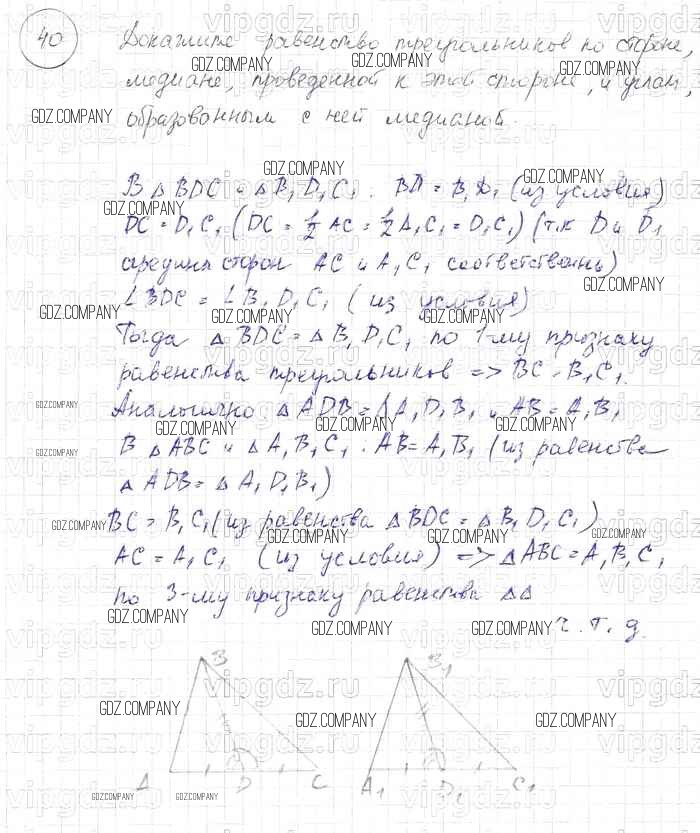 40 Докажите равенство треугольников по стороне,
медиане, проведенной к этой стороне, и углам,
образованным с ней медианой.
В △ BDC и △ B₁D₁C₁ : BD = B₁D₁ (из условия)
DC = D₁C₁ (DC = 1/2 AC = 1/2 A₁C₁ = D₁C₁) (т.к D и D₁
середины сторон AC и A₁C₁ соответственно)
∠BDC = ∠B₁D₁C₁ (из условия)
Тогда △ BDC = △ B₁D₁C₁ по 1-му признаку
равенства треугольников => BC = B₁C₁.
Аналогично △ ADB = △A₁D₁B₁ и AB = A₁B₁
В △ ABC и △ A₁B₁C₁ : AB = A₁B₁ (из равенства
△ ADB = △ A₁D₁B₁)
BC = B₁C₁ (из равенства △ BDC = △ B₁D₁C₁)
AC = A₁C₁ (из условия) => △ABC = A₁B₁C₁
по 3-му признаку равенства △△
ч.т.д.
B B₁
A D C A₁ D₁ C₁
GDZ.COMPANY
vipgdz.ru